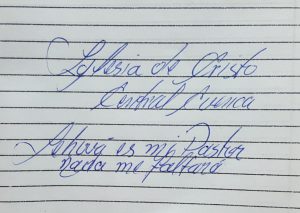 Iglesia de Cristo
Central Cuenca
Jehová es mi Pastor
nada me faltará